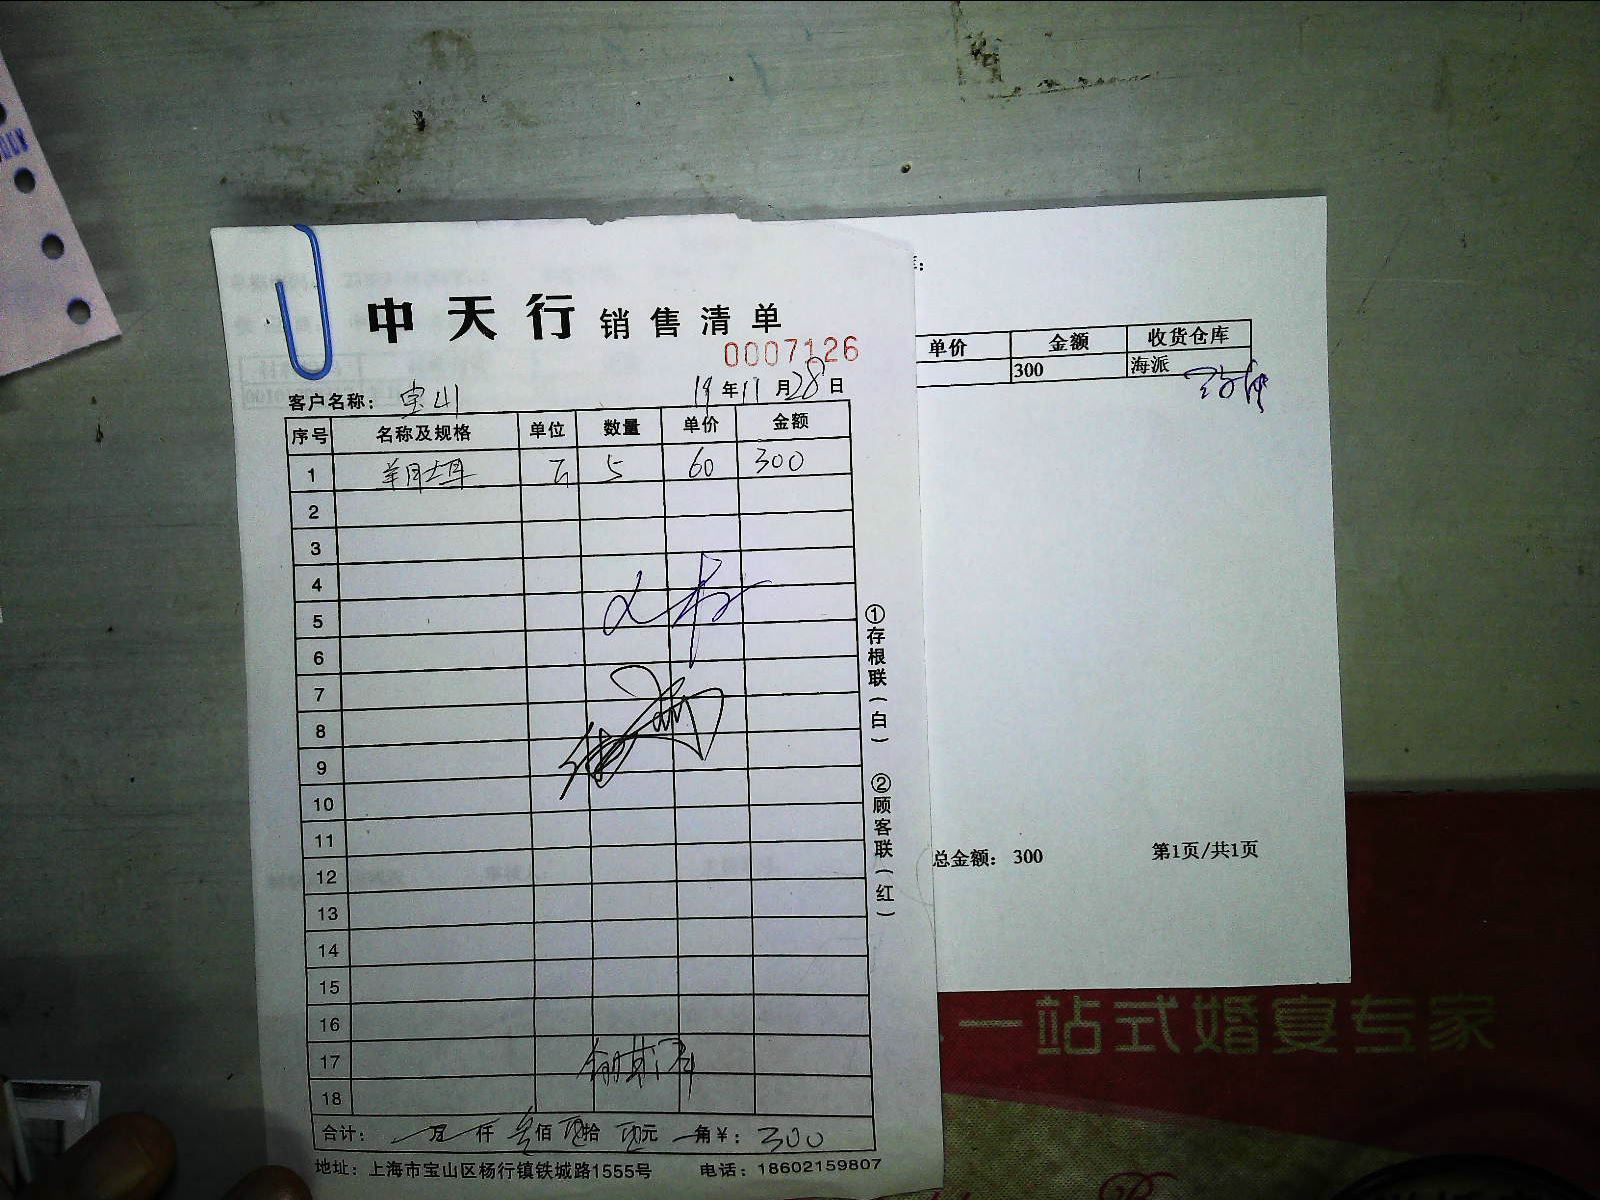 中天行 销售清单
0007126
客户名称: 宝山 19年11月28日
序号 名称及规格 单位 数量 单价 金额
1 5 60 300
2
3
4
5
6
7
8
9
10
11
12
13
14
15
16
17
18
合计: 万 仟 叁佰 拾 元 角 ¥: 300
地址: 上海市宝山区杨行镇铁城路1555号 电话: 18602159807
①存根联(白) ②顾客联(红)
单价 金额 收货仓库
300 海派
总金额: 300 第1页/共1页
一站式婚宴专家